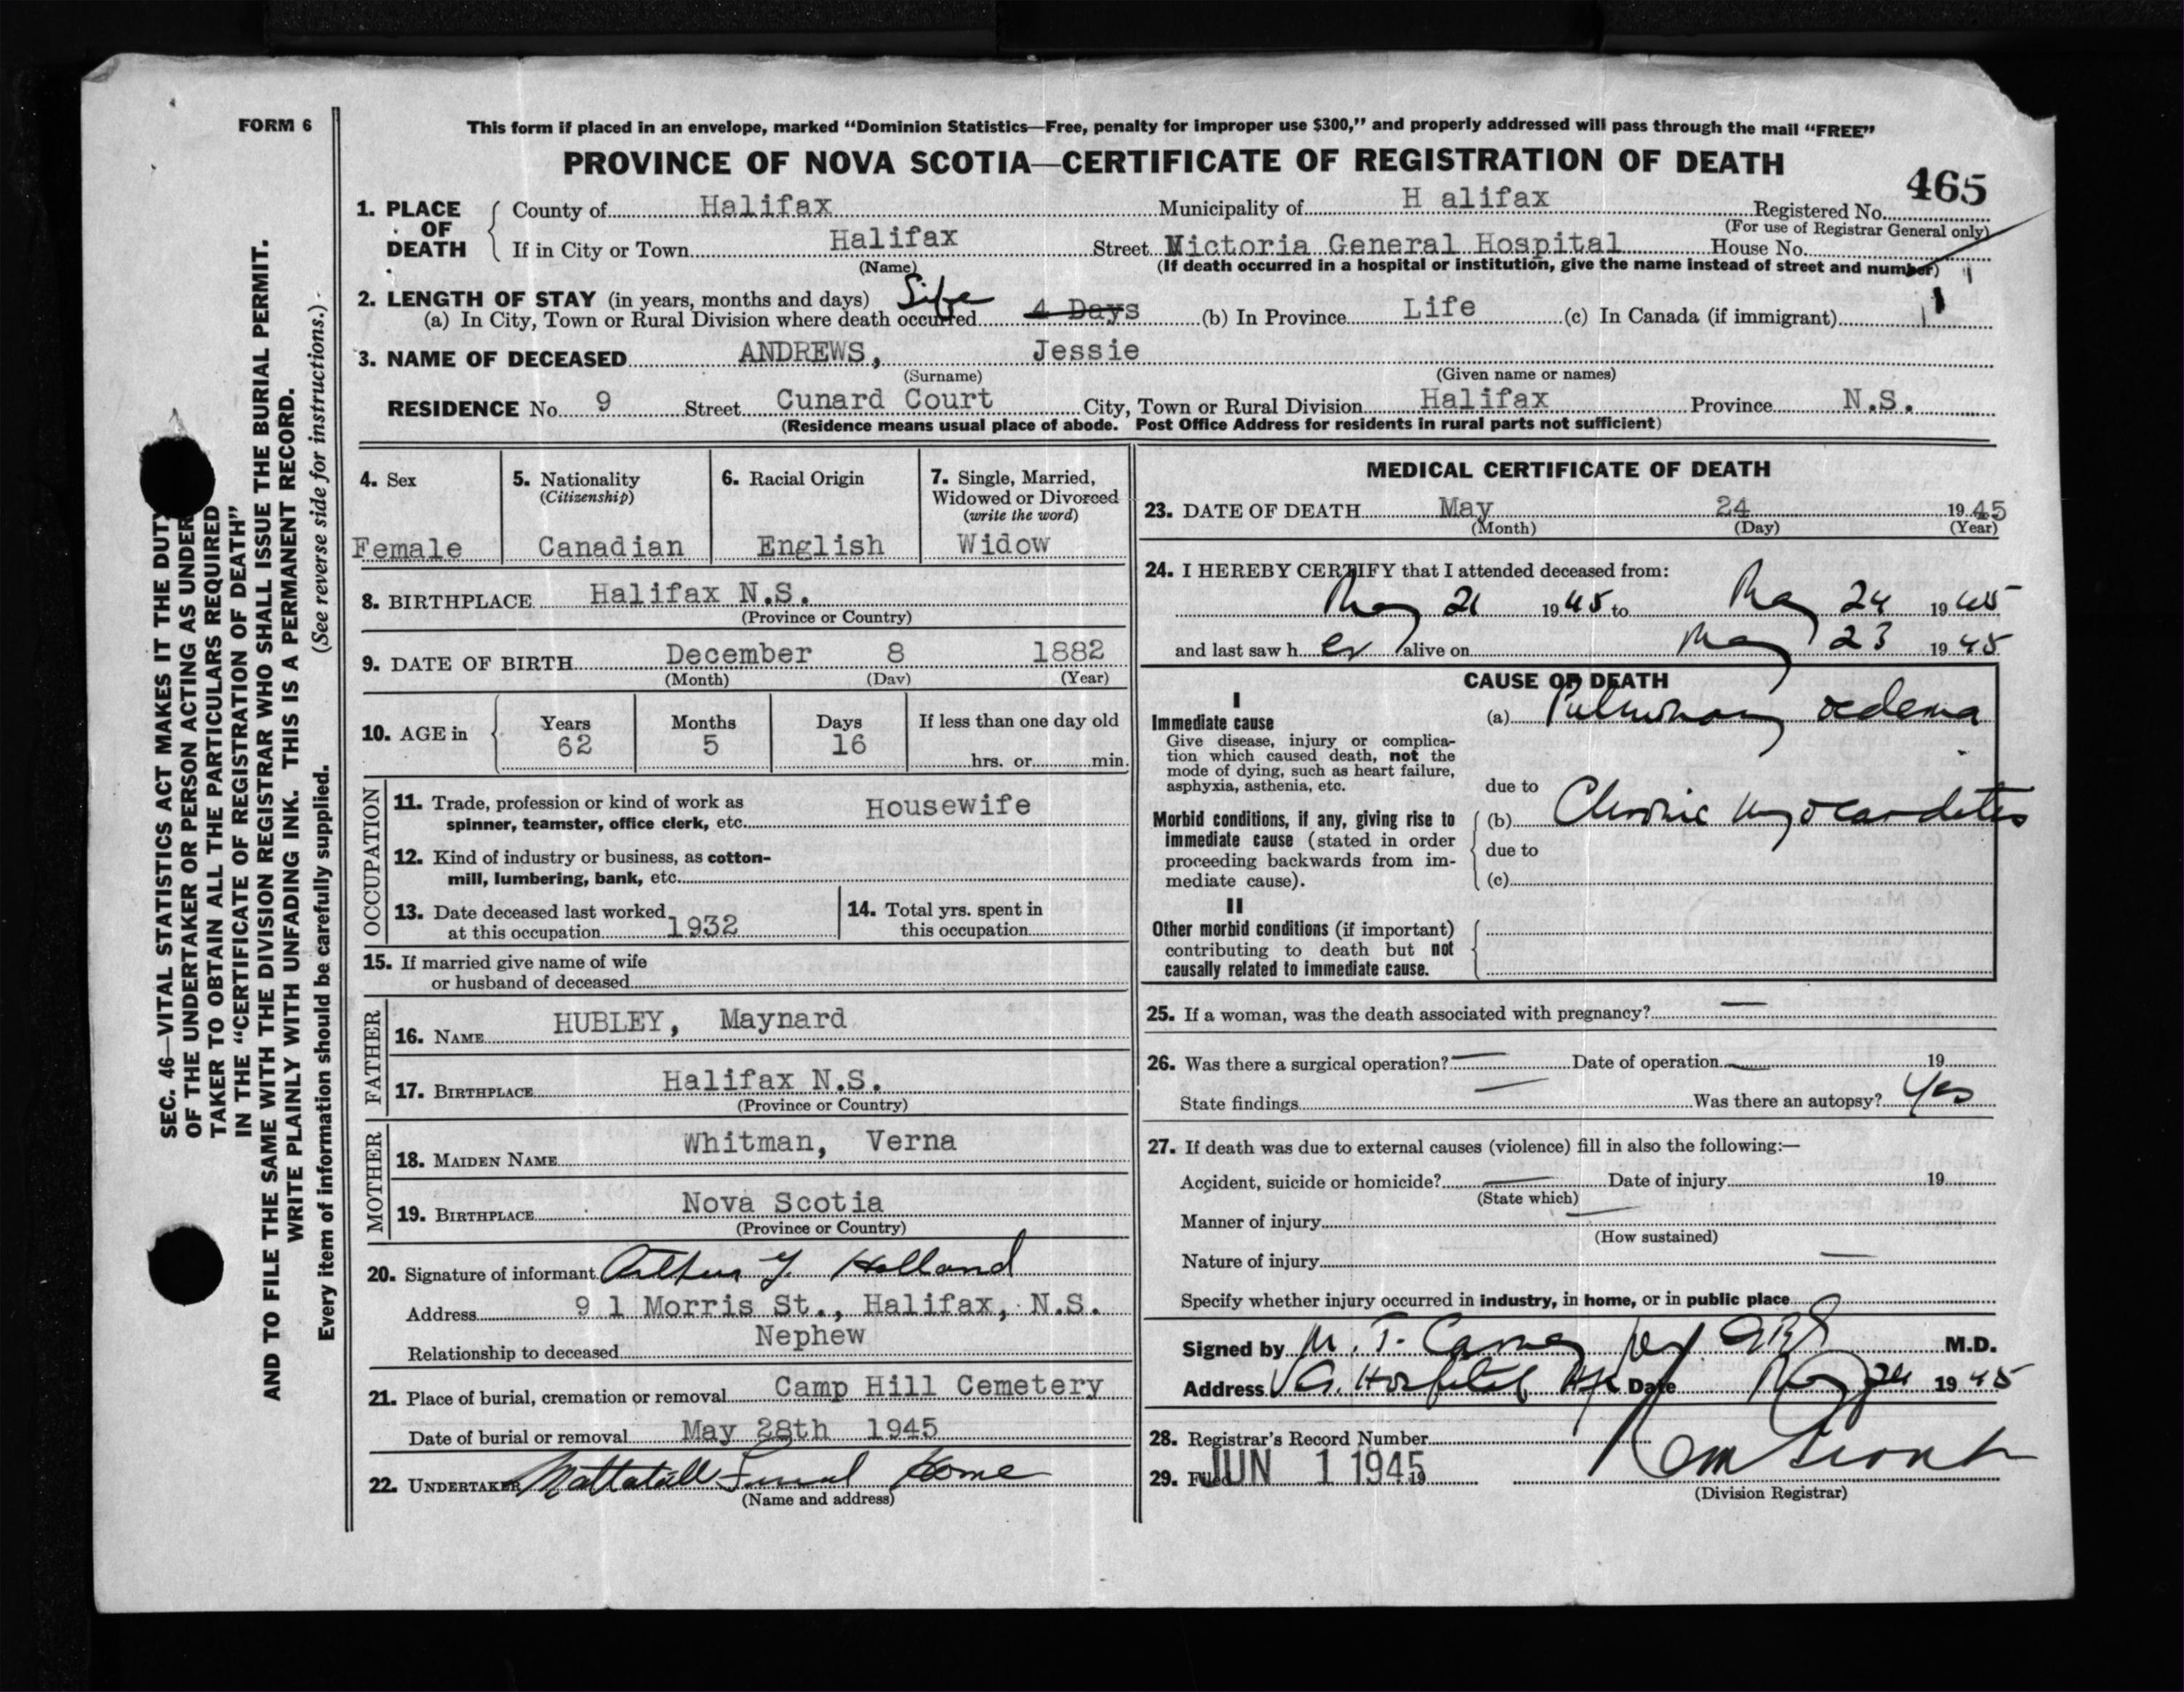 FORM 6
This form if placed in an envelope, marked “Dominion Statistics—Free, penalty for improper use $300,” and properly addressed will pass through the mail “FREE”
PROVINCE OF NOVA SCOTIA—CERTIFICATE OF REGISTRATION OF DEATH
465
1. PLACE OF DEATH { County of Halifax Municipality of H alifax Registered No.
(For use of Registrar General only)
If in City or Town Halifax Street Victoria General Hospital House No.
(Name) (If death occurred in a hospital or institution, give the name instead of street and number)
2. LENGTH OF STAY (in years, months and days) Life
(a) In City, Town or Rural Division where death occurred 4 Days (b) In Province Life (c) In Canada (if immigrant)
3. NAME OF DECEASED ANDREWS, Jessie
(Surname) (Given name or names)
RESIDENCE No. 9 Street Cunard Court City, Town or Rural Division Halifax Province N.S.
(Residence means usual place of abode. Post Office Address for residents in rural parts not sufficient)
4. Sex
Female
5. Nationality
(Citizenship)
Canadian
6. Racial Origin
English
7. Single, Married,
Widowed or Divorced
(write the word)
Widow
8. BIRTHPLACE Halifax N.S.
(Province or Country)
9. DATE OF BIRTH December 8 1882
(Month) (Day) (Year)
10. AGE in { Years Months Days If less than one day old
62 5 16
hrs. or min.
OCCUPATION
11. Trade, profession or kind of work as
spinner, teamster, office clerk, etc. Housewife
12. Kind of industry or business, as cotton-
mill, lumbering, bank, etc.
13. Date deceased last worked
at this occupation 1932
14. Total yrs. spent in
this occupation
15. If married give name of wife
or husband of deceased
FATHER
16. NAME HUBLEY, Maynard
17. BIRTHPLACE Halifax N.S.
(Province or Country)
MOTHER
18. MAIDEN NAME Whitman, Verna
19. BIRTHPLACE Nova Scotia
(Province or Country)
20. Signature of informant Arthur Y. Holland
Address 9 1 Morris St., Halifax, N.S.
Relationship to deceased Nephew
21. Place of burial, cremation or removal Camp Hill Cemetery
Date of burial or removal May 28th 1945
22. UNDERTAKER Nattatall Funeral Home
(Name and address)
MEDICAL CERTIFICATE OF DEATH
23. DATE OF DEATH May 24 1945
(Month) (Day) (Year)
24. I HEREBY CERTIFY that I attended deceased from:
May 21 1945 to May 24 1945
and last saw h er alive on May 23 1945
CAUSE OF DEATH
I
Immediate cause
Give disease, injury or complica-
tion which caused death, not the
mode of dying, such as heart failure,
asphyxia, asthenia, etc.
(a) Pulmonary oedema
due to
Morbid conditions, if any, giving rise to
immediate cause (stated in order
proceeding backwards from im-
mediate cause).
(b) Chronic myocarditis
due to
(c)
II
Other morbid conditions (if important)
contributing to death but not
causally related to immediate cause.
25. If a woman, was the death associated with pregnancy? —
26. Was there a surgical operation? — Date of operation — 19
State findings — Was there an autopsy? Yes
27. If death was due to external causes (violence) fill in also the following:—
Accident, suicide or homicide? — Date of injury 19
(State which)
Manner of injury —
(How sustained)
Nature of injury —
Specify whether injury occurred in industry, in home, or in public place
Signed by M. T. M.D.
Address V.G. Hospital Hfx Date May 24 1945
28. Registrar's Record Number
29. Filed JUN 1 1945 19
(Division Registrar)
SEC. 46—VITAL STATISTICS ACT MAKES IT THE DUTY
OF THE UNDERTAKER OR PERSON ACTING AS UNDER
TAKER TO OBTAIN ALL THE PARTICULARS REQUIRED
IN THE “CERTIFICATE OF REGISTRATION OF DEATH”
AND TO FILE THE SAME WITH THE DIVISION REGISTRAR WHO SHALL ISSUE THE BURIAL PERMIT.
WRITE PLAINLY WITH UNFADING INK. THIS IS A PERMANENT RECORD.
Every item of information should be carefully supplied. (See reverse side for instructions.)